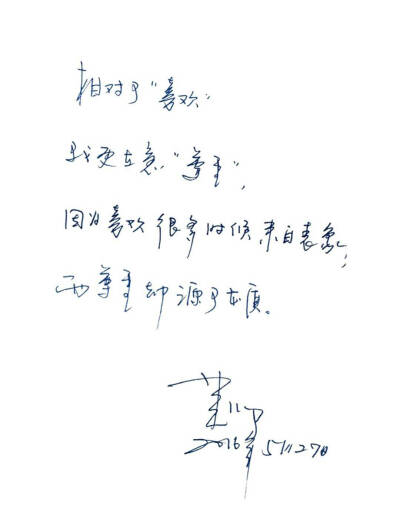 相对于“喜欢”
我更在意“尊重”，
因为喜欢很多时候来自表象；
而尊重却源于本质。
2016年5月27日